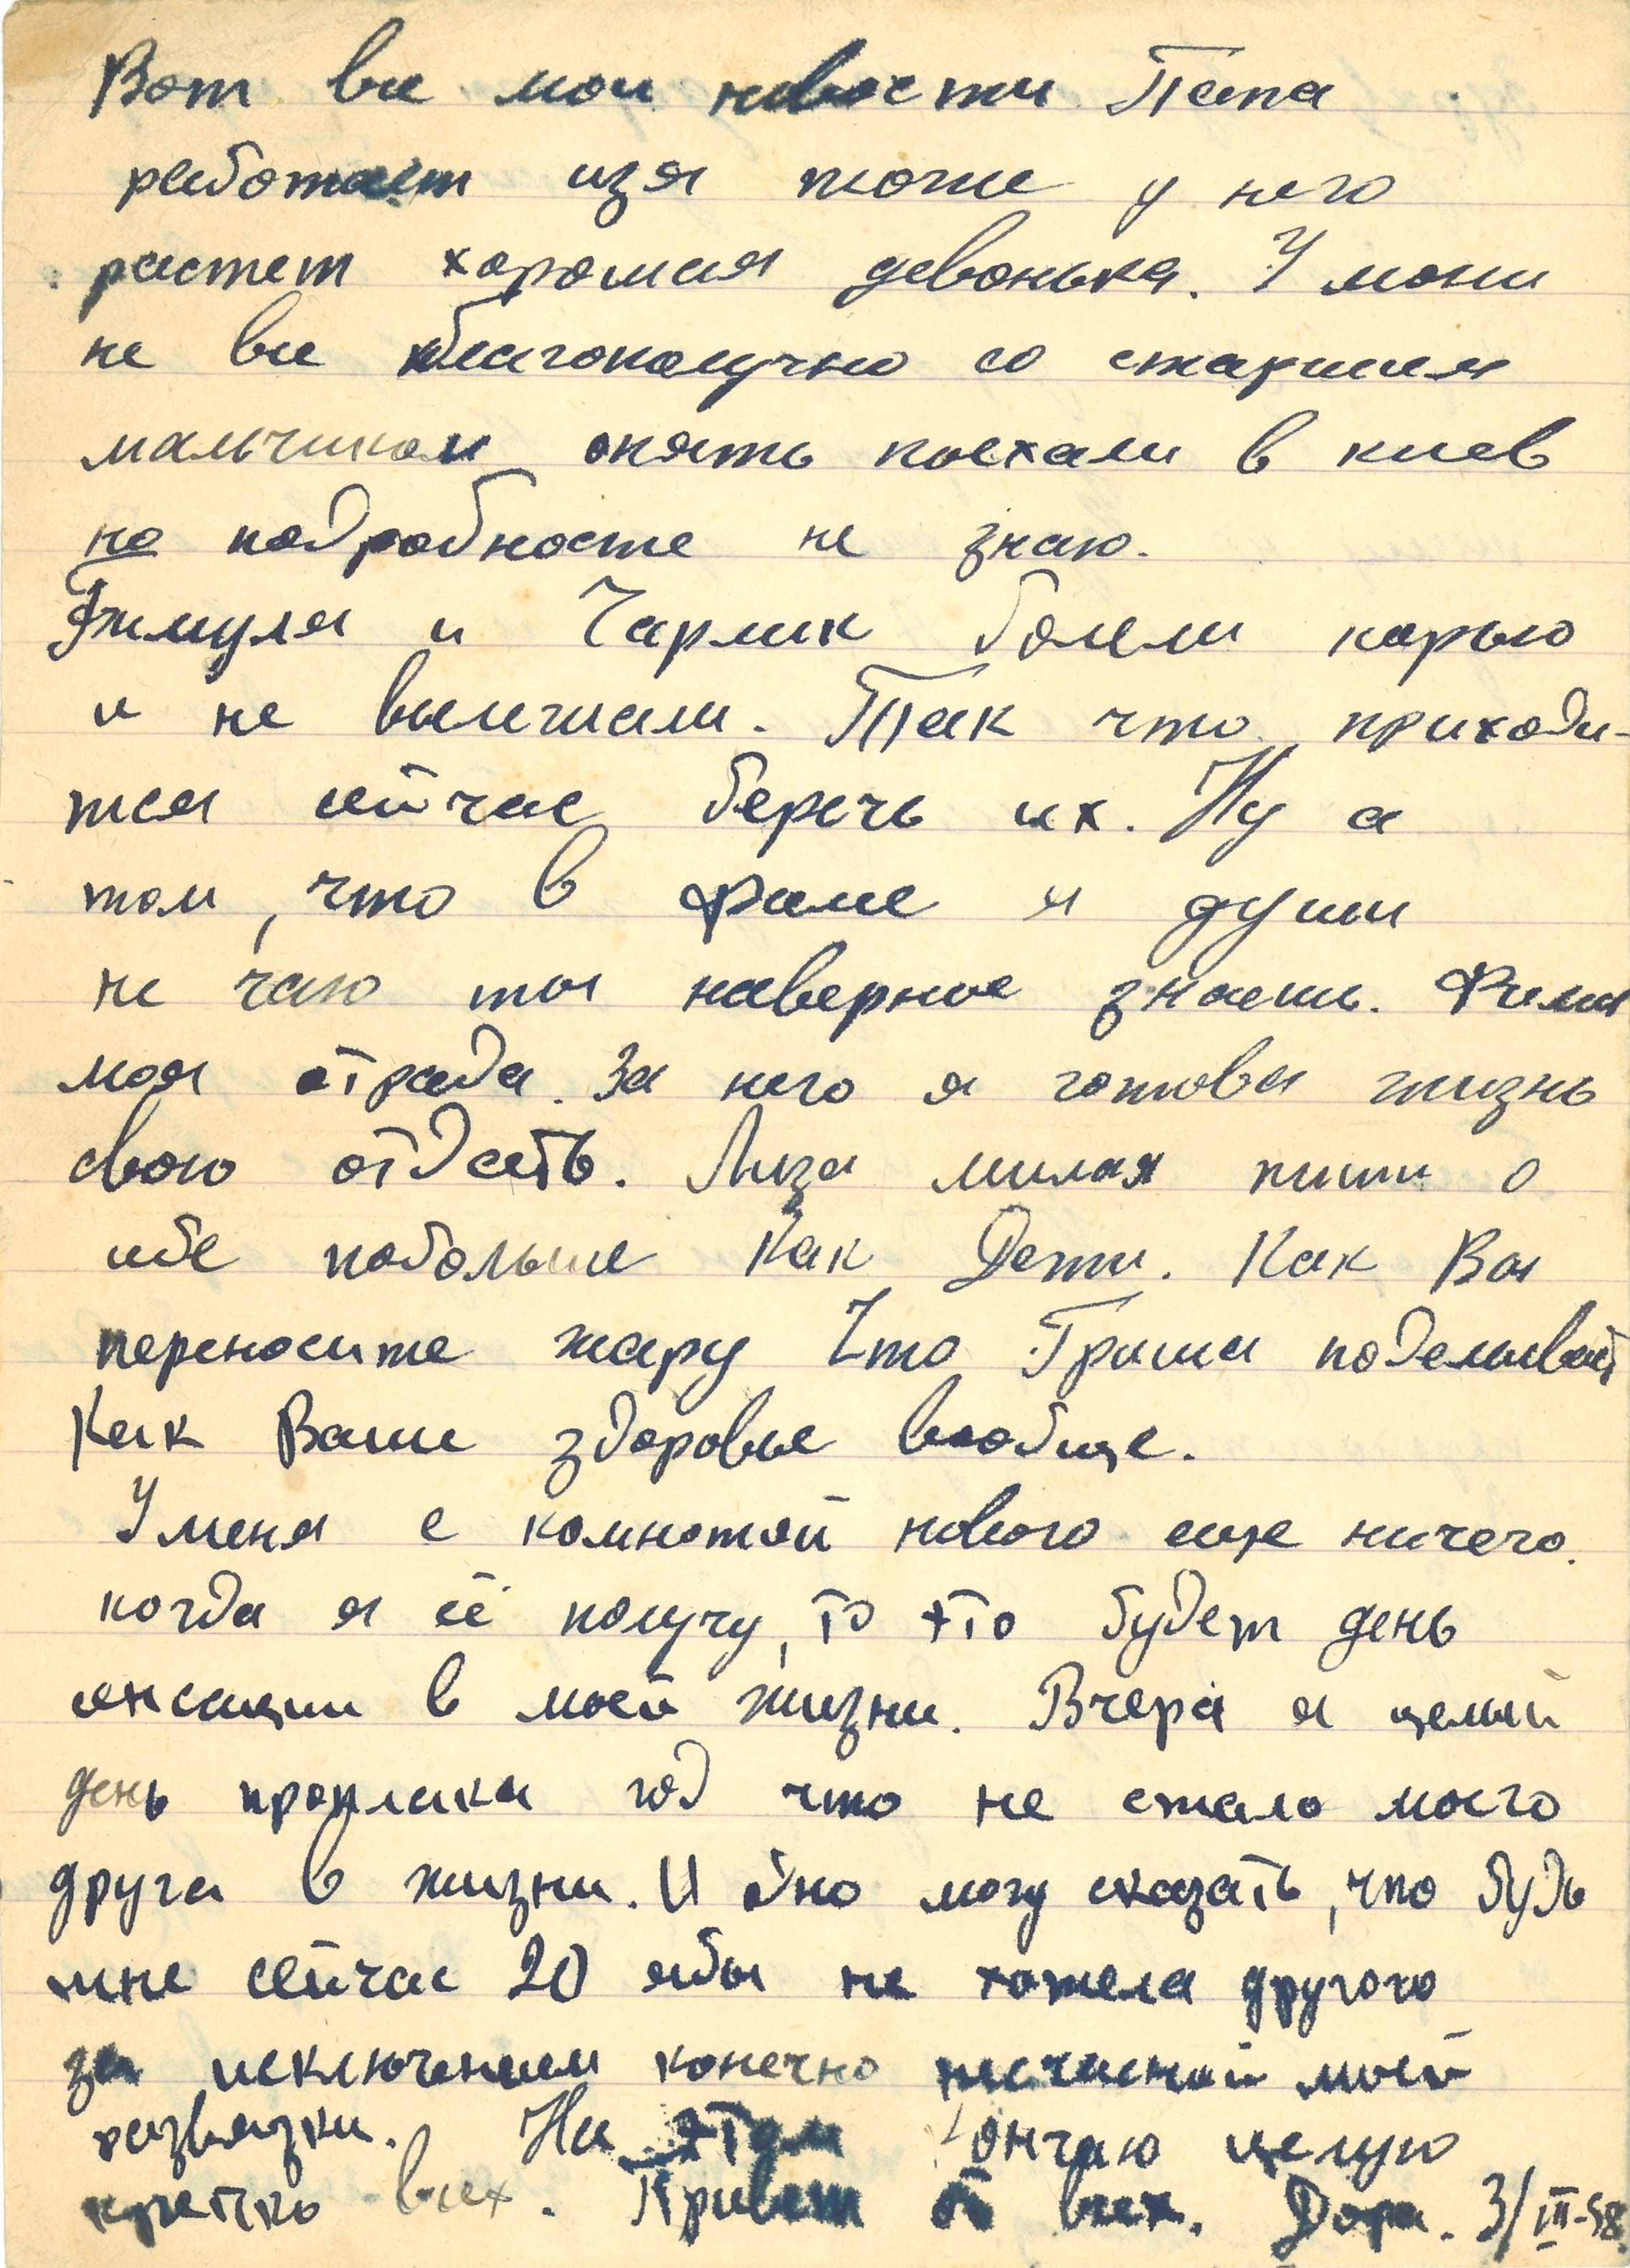 Вот все мои новости Папа
работает изя тоже у него
растет хорошая девонька. У мони
не все благополучно со старшем
мальчиком опять поехали в киев
но подробносте не знаю.
Фимуля и Чарлик болели корью
и не вылежали. Так что приходи-
тся сейчас беречь их. Ну а
том, что в Фиме я души
не чаю ты наверное знаешь. Фима
моя отрада. За него я готова жизнь
свою отдать. Лиза милая пиши о
себе побольше Как Дети. Как Вы
переносите жару Что Гриша поделывает
Как Ваше здоровье вообще.
У меня с комнатой нового еще ничего.
когда я её получу, то это будет день
сенсации в моей жизни. Вчера я целый
день проплака год что не стало моего
друга в жизни. И одно могу сказать, что будь
мне сейчас 20 ябы не хотела другого
за исключением конечно несчастной моей
развязки. На этом кончаю целую
крепко всех. Привет от всех. Дора. 3/III-58.